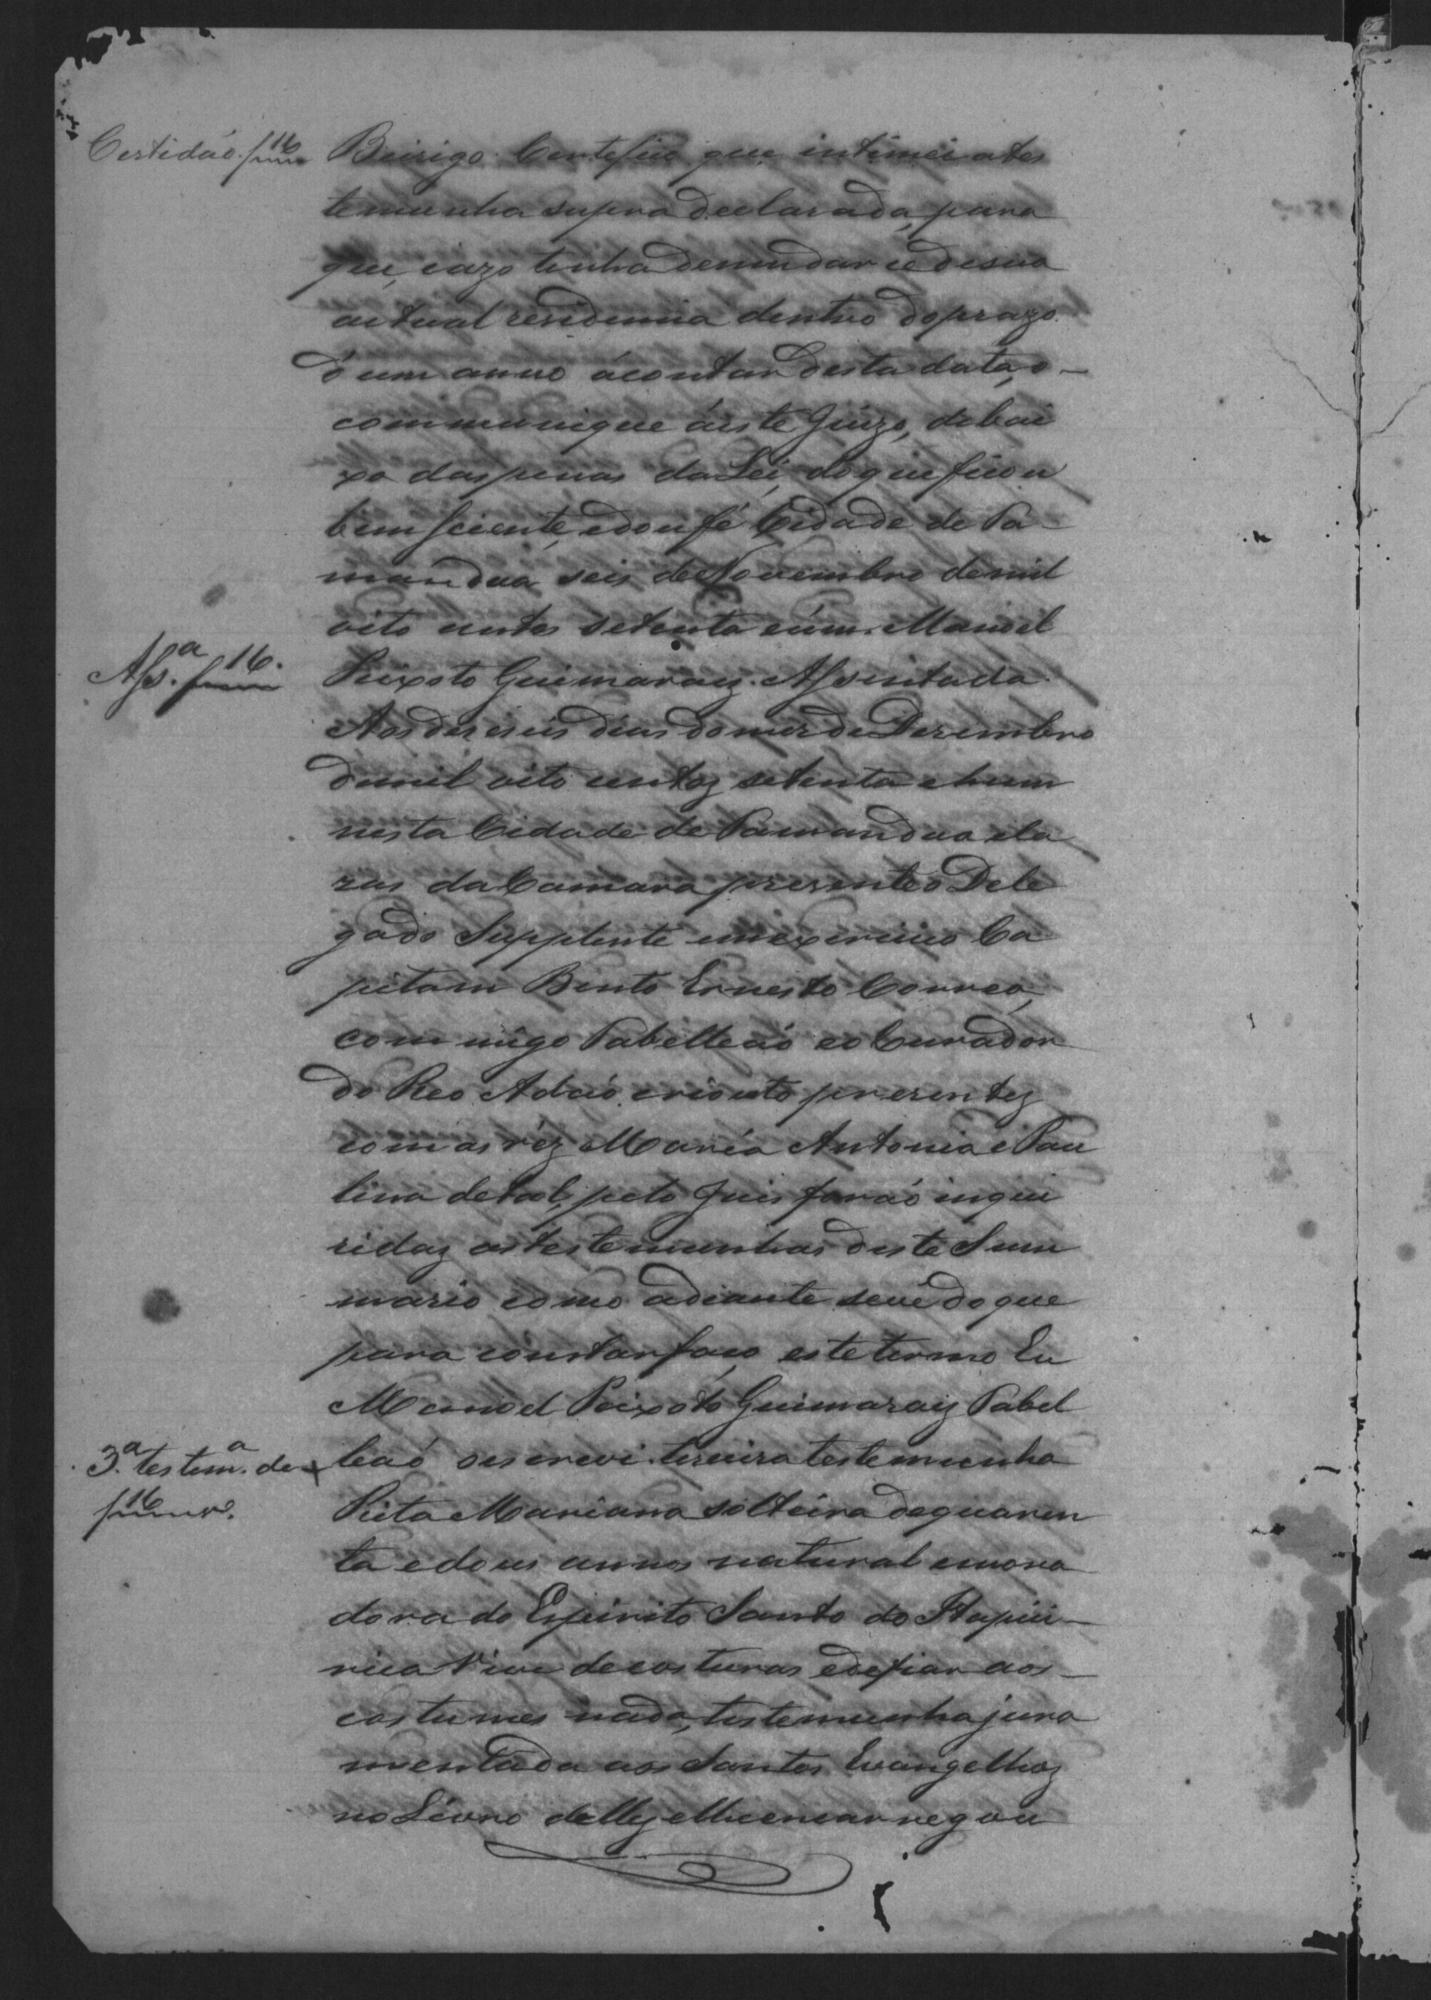 Certidão. f 16
Beirigo. Certifico que intimei ates
temunha supra declarada, para
que, cazo tenha demudar se desua
actual residencia dentro do prazo
d'um anno ácontar desta data, o
communique áeste Juizo, debai
xo das penas da Lei, do que ficou
bem sciente, edou fé Cidade de Ta-
mandua seis de Novembro demil
oito centos setenta eúm. Manoel
Afs.ª f 16.
Peixoto Guimaraiz. Assentada.
Aos deseseis dias do mez de Dezembro
demil oito centoz setenta ehum
nesta Cidade de Tamandua ela
zas da Camara presente o Dele
gado Supplente em exercicio Ca
pitam Bento Ernesto Correa,
com migo Tabelleaó eo Curador
do Reo Adaó, erioulo presentez
com as réz Maria Antonia e Pau
lina de tal, pelo Juis foraó inqui
ridaz as testemunhas deste Sum
mario como adiante sevê do que
para constar faço este termo Eu
Manoel Peixoto Guimaraiz Tabel
3ª testem.ª de f 16 v.º
leaó oescrevi. terceira testemunha
Rita Mariana solteira de quaren
ta edous annos natural emora
dora do Espirito Santo do Itapici-
rica vive decosturas edefiar aos
costumes nada, testemunha jura
mentada aos Santos Evangelhoz
no Livro dellez elheencarregou